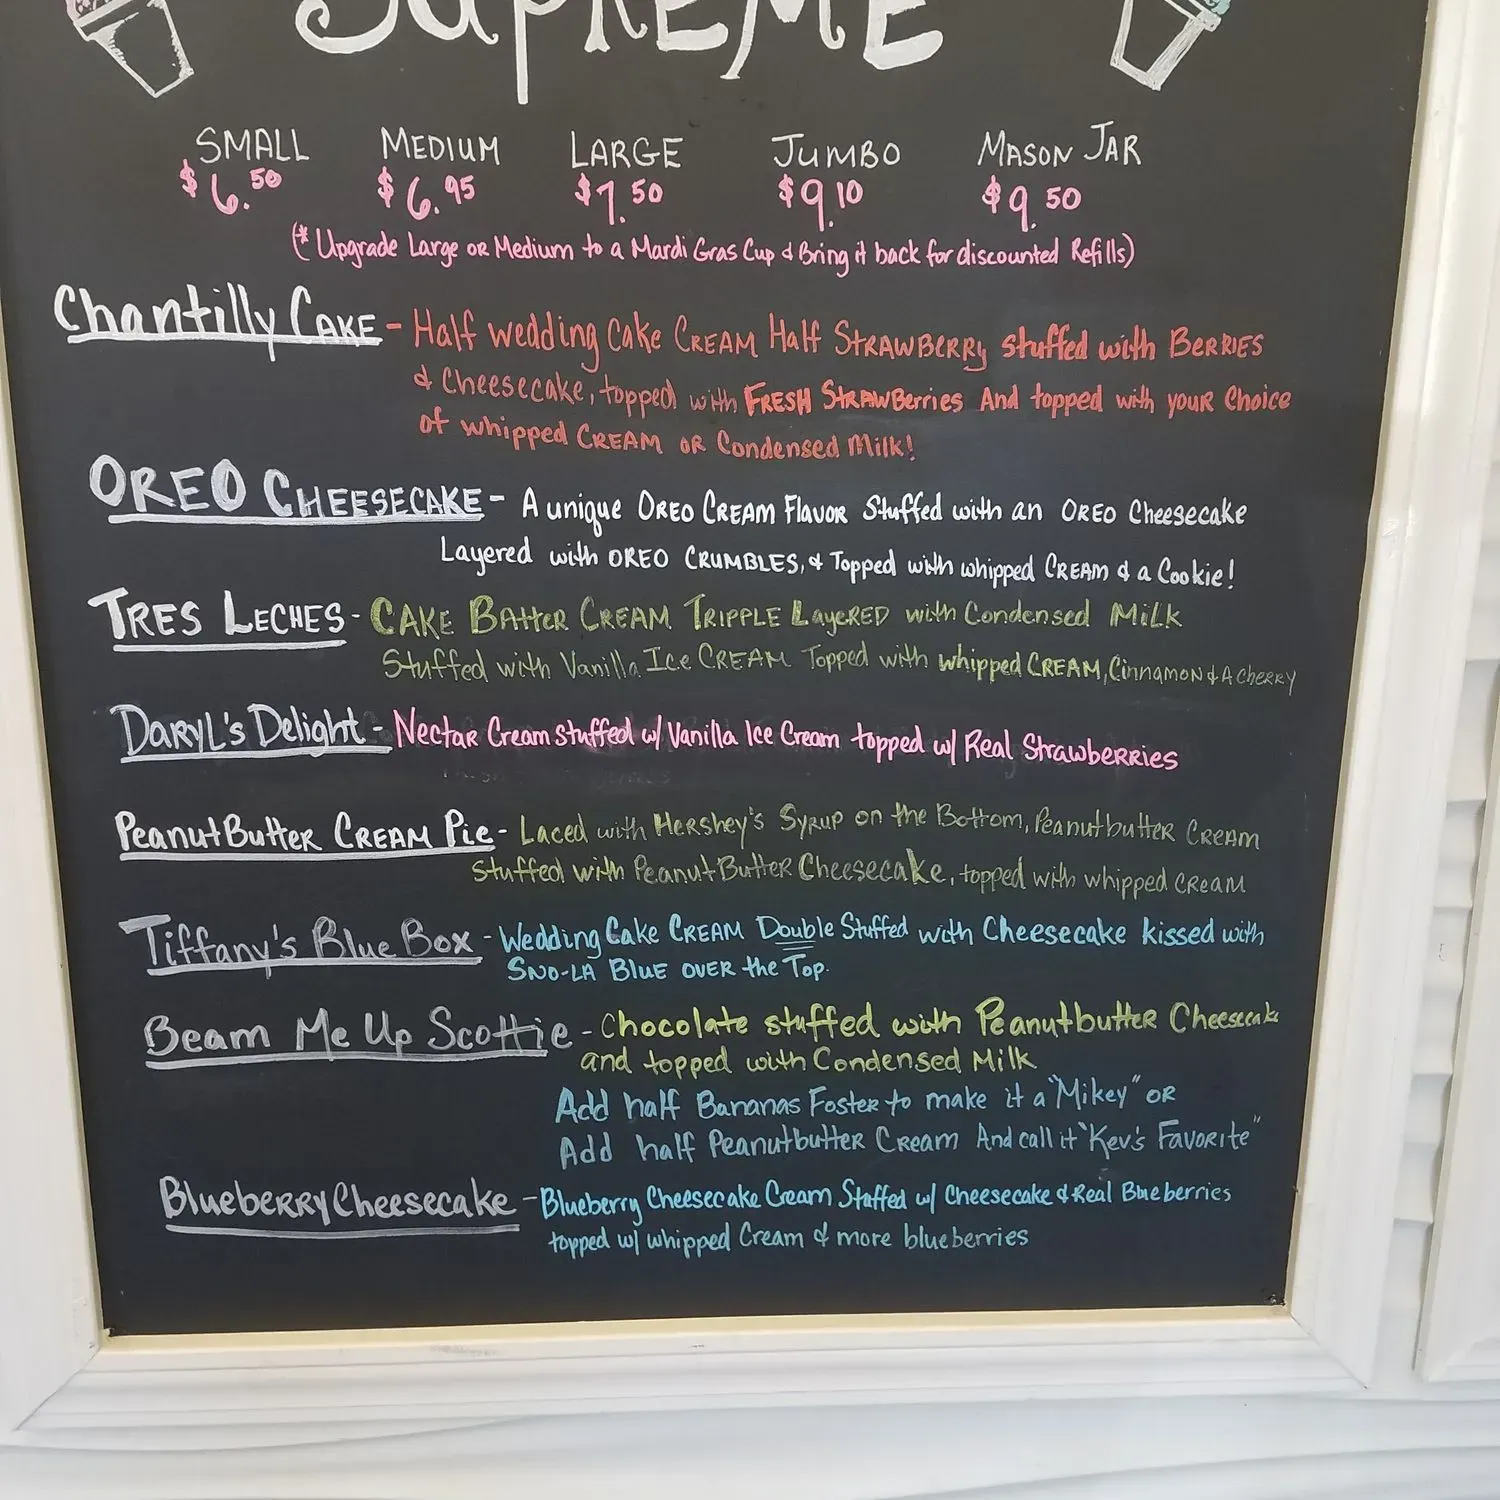 SUPREME
SMALL MEDIUM LARGE JUMBO MASON JAR
$6.50 $6.95 $7.50 $9.10 $9.50
(* Upgrade Large OR Medium to a Mardi Gras Cup & Bring it back for discounted Refills)
Chantilly CAKE - Half wedding Cake CREAM Half STRAWBERRY stuffed with BERRIES
& Cheesecake, topped with FRESH STRAWBerries And topped with youR Choice
of whipped CREAM OR Condensed Milk!
OREO CHEESECAKE - A unique OREO CREAM Flavor Stuffed with an OREO Cheesecake
Layered with OREO CRUMBLES, & Topped with whipped CREAM & a Cookie!
TRES LECHES - CAKE BAtteR CREAM TRIPPLE LayeRED with Condensed MiLK
Stuffed with Vanilla Ice CREAM Topped with whipped CREAM, Cinnamon & A CheRRy
DaRyL's Delight - Nectar Cream stuffed w/ Vanilla Ice Cream topped w/ Real StrawbeRRies
PeanutButteR CREAM Pie - Laced with HeRshey's SyRup on the Bottom, PeanutbutteR CREAM
stuffed with PeanutButteR Cheesecake, topped with whipped CREAM
Tiffany's Blue Box - Wedding Cake CREAM Double Stuffed with Cheesecake kissed with
SNO-LA BLUE OVER the Top.
Beam Me Up Scottie - Chocolate stuffed with PeanutbutteR Cheesecake
and topped with Condensed Milk
Add half Bananas Foster to make it a "Mikey" OR
Add half PeanutbutteR Cream And call it "Kev's FavoRite"
BluebeRRy Cheesecake - Blueberry Cheesecake Cream Stuffed w/ Cheesecake & Real Blueberries
topped w/ whipped Cream & more blueberries